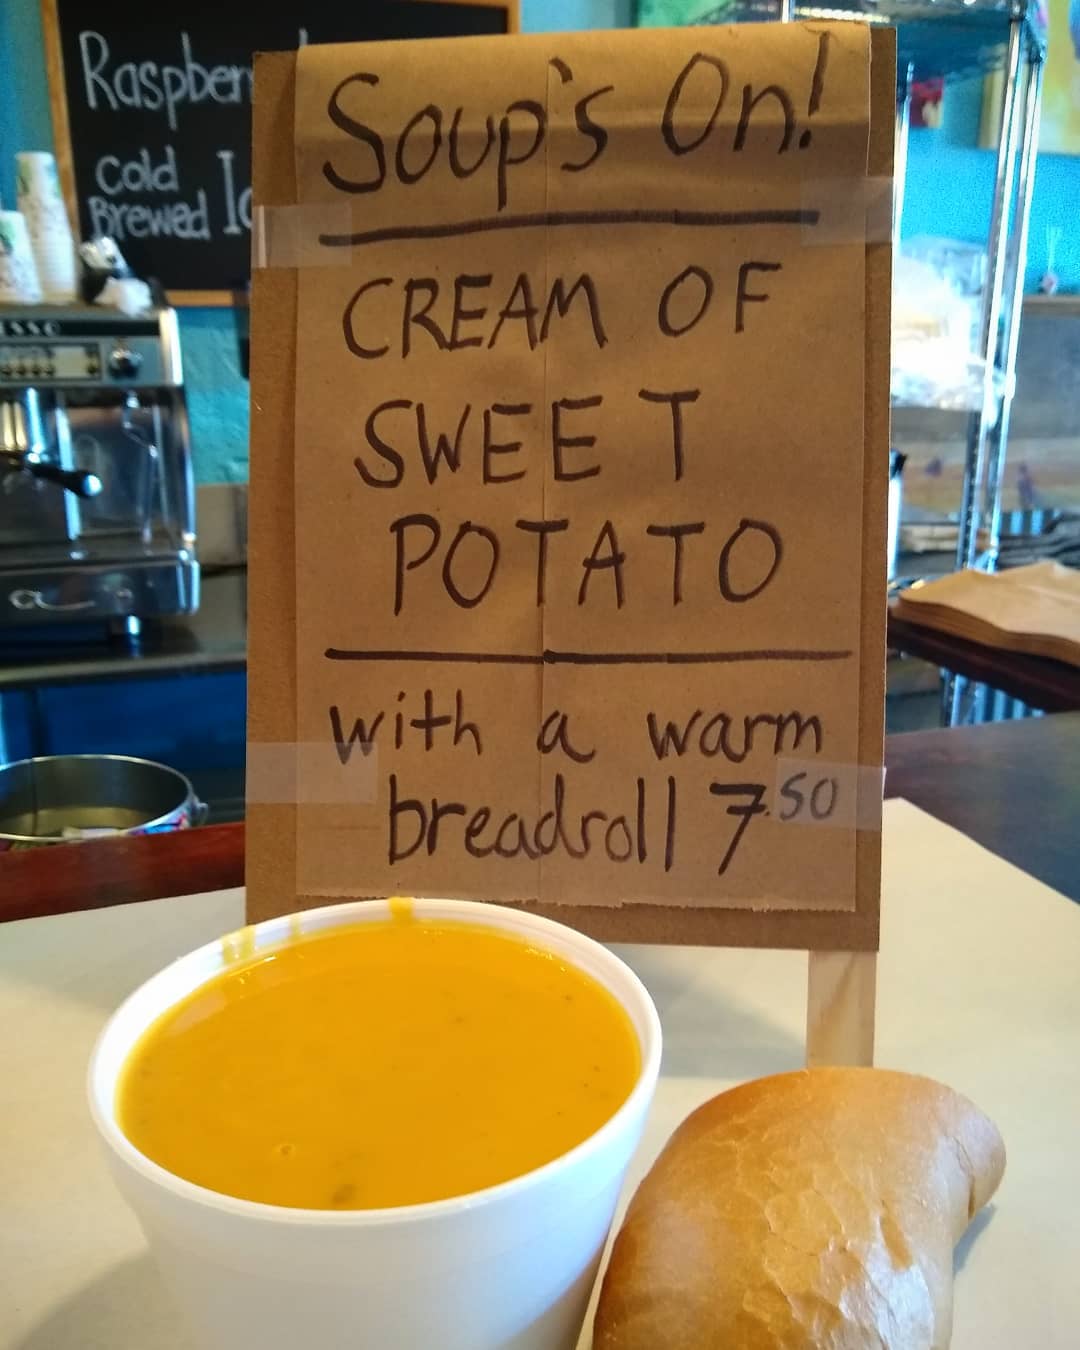 Soup's On!
CREAM OF
SWEET
POTATO
with a warm
breadroll 7.50
cold
Brewed